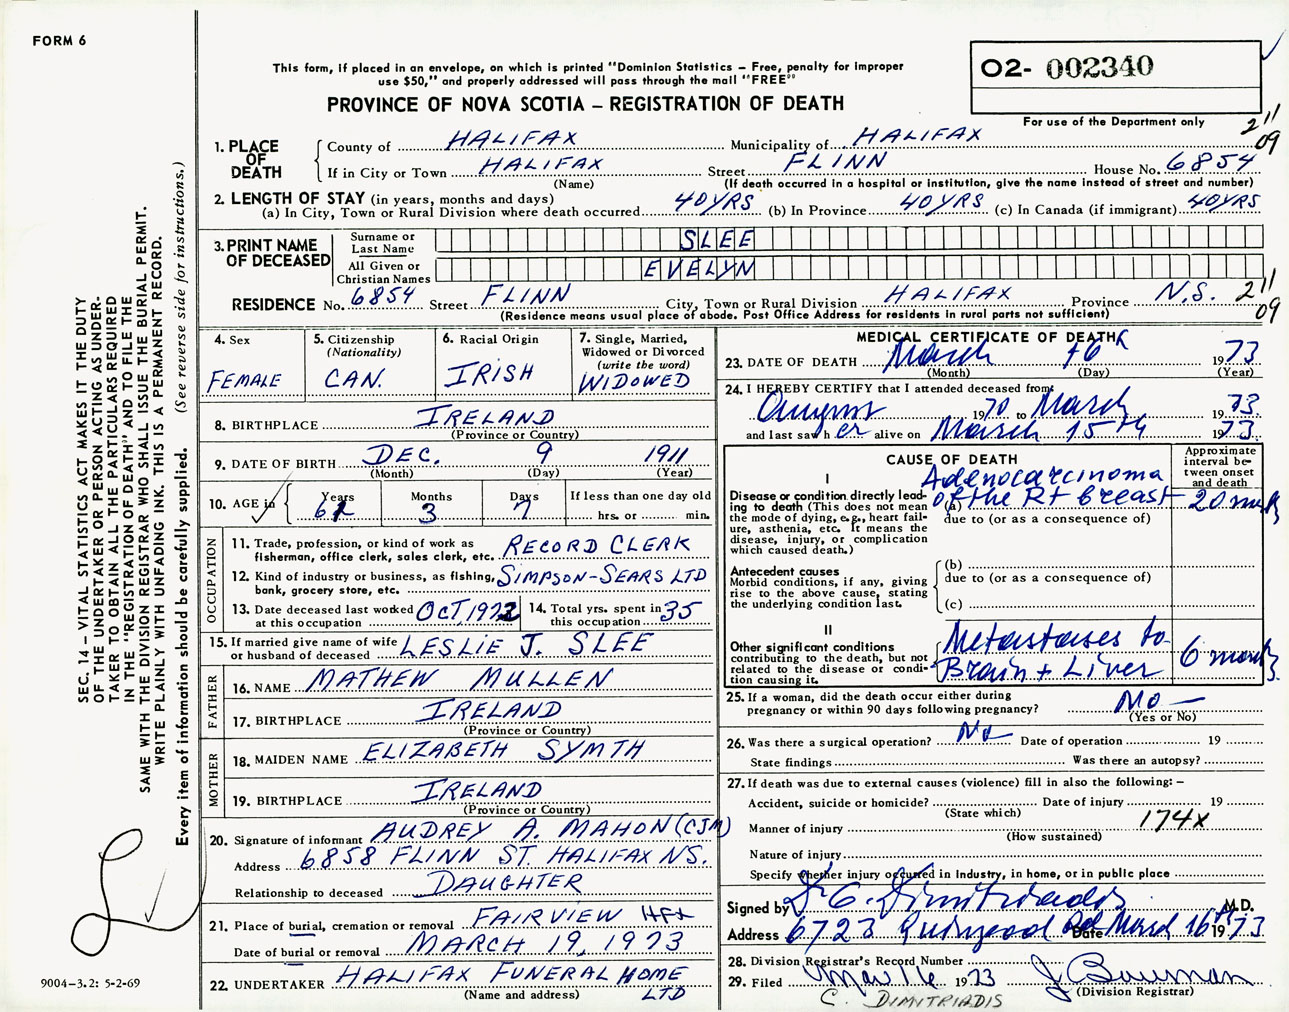 FORM 6
This form, if placed in an envelope, on which is printed "Dominion Statistics – Free, penalty for improper
use $50," and properly addressed will pass through the mail "FREE"
O2- 002340
For use of the Department only
PROVINCE OF NOVA SCOTIA – REGISTRATION OF DEATH
2 11
09
1. PLACE OF DEATH
County of HALIFAX Municipality of HALIFAX
If in City or Town HALIFAX Street FLINN House No. 6854
(Name) (If death occurred in a hospital or institution, give the name instead of street and number)
2. LENGTH OF STAY (in years, months and days)
(a) In City, Town or Rural Division where death occurred 40YRS (b) In Province 40YRS (c) In Canada (if immigrant) 40YRS
3. PRINT NAME OF DECEASED
Surname or Last Name SLEE
All Given or Christian Names EVELYN
RESIDENCE No. 6854 Street FLINN City, Town or Rural Division HALIFAX Province N.S. 2 11
09
(Residence means usual place of abode. Post Office Address for residents in rural parts not sufficient)
4. Sex
FEMALE
5. Citizenship
(Nationality)
CAN.
6. Racial Origin
IRISH
7. Single, Married,
Widowed or Divorced
(write the word)
WIDOWED
8. BIRTHPLACE IRELAND
(Province or Country)
9. DATE OF BIRTH DEC. 9 1911
(Month) (Day) (Year)
10. AGE in Years Months Days If less than one day old
61 3 7 hrs. or min.
OCCUPATION
11. Trade, profession, or kind of work as
fisherman, office clerk, sales clerk, etc. RECORD CLERK
12. Kind of industry or business, as fishing,
bank, grocery store, etc. SIMPSON-SEARS LTD
13. Date deceased last worked
at this occupation OCT, 1972
14. Total yrs. spent in
this occupation 35
15. If married give name of wife
or husband of deceased LESLIE J. SLEE
FATHER
16. NAME MATHEW MULLEN
17. BIRTHPLACE IRELAND
(Province or Country)
MOTHER
18. MAIDEN NAME ELIZABETH SYMTH
19. BIRTHPLACE IRELAND
(Province or Country)
20. Signature of informant AUDREY A. MAHON (CJM)
Address 6858 FLINN ST. HALIFAX NS.
Relationship to deceased DAUGHTER
21. Place of burial, cremation or removal FAIRVIEW HFX
Date of burial or removal MARCH 19, 1973
22. UNDERTAKER HALIFAX FUNERAL HOME
(Name and address) LTD
MEDICAL CERTIFICATE OF DEATH
23. DATE OF DEATH March 16 1973
(Month) (Day) (Year)
24. I HEREBY CERTIFY that I attended deceased from:
August 1970 to March 1973
and last saw her alive on March 15th 1973
CAUSE OF DEATH
Approximate
interval be-
tween onset
and death
I
Disease or condition directly lead-
ing to death (This does not mean
the mode of dying, e.g., heart fail-
ure, asthenia, etc. It means the
disease, injury, or complication
which caused death.)
Adenocarcinoma
(a) of the Rt breast 20 mths
due to (or as a consequence of)
Antecedent causes
Morbid conditions, if any, giving
rise to the above cause, stating
the underlying condition last.
(b)
due to (or as a consequence of)
(c)
II
Other significant conditions
contributing to the death, but not
related to the disease or condi-
tion causing it.
Metastases to
Brain + Liver 6 months
25. If a woman, did the death occur either during
pregnancy or within 90 days following pregnancy? No
(Yes or No)
26. Was there a surgical operation? No Date of operation 19
State findings Was there an autopsy?
27. If death was due to external causes (violence) fill in also the following: –
Accident, suicide or homicide? Date of injury 19
(State which)
Manner of injury 174x
(How sustained)
Nature of injury
Specify whether injury occurred in industry, in home, or in public place
Signed by C. Dimitriadis M.D.
Address 6723 Rd Date March 16th 1973
28. Division Registrar's Record Number
29. Filed Mar 16 1973 J Bowman
(Division Registrar)
C. DIMITRIADIS
SEC. 14 – VITAL STATISTICS ACT MAKES IT THE DUTY
OF THE UNDERTAKER OR PERSON ACTING AS UNDER-
TAKER TO OBTAIN ALL THE PARTICULARS REQUIRED
IN THE "REGISTRATION OF DEATH" AND TO FILE THE
SAME WITH THE DIVISION REGISTRAR WHO SHALL ISSUE THE BURIAL PERMIT.
WRITE PLAINLY WITH UNFADING INK. THIS IS A PERMANENT RECORD.
Every item of information should be carefully supplied. (See reverse side for instructions.)
9004-3.2: 5-2-69